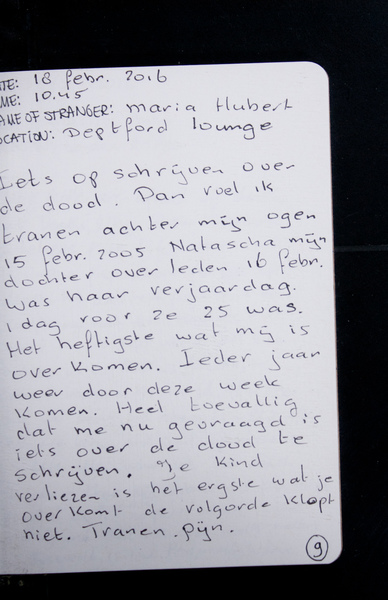 TE: 18 febr. 2016
ME: 10.45
AME OF STRANGER: Maria Hubert
OCATION: Deptford lounge
Iets op schrijven over
de dood. Dan voel ik
tranen achter mijn ogen
15 febr. 2005 Natascha mijn
dochter over leden 16 febr.
was haar verjaardag.
1 dag voor ze 25 was.
Het heftigste wat mij is
over komen. Ieder jaar
weer door deze week
komen. Heel toevallig
dat me nu gevraagd is
iets over de dood te
schrijven. Je kind
verliezen is het ergste wat je
over komt de volgorde klopt
niet. Tranen. pijn.
9